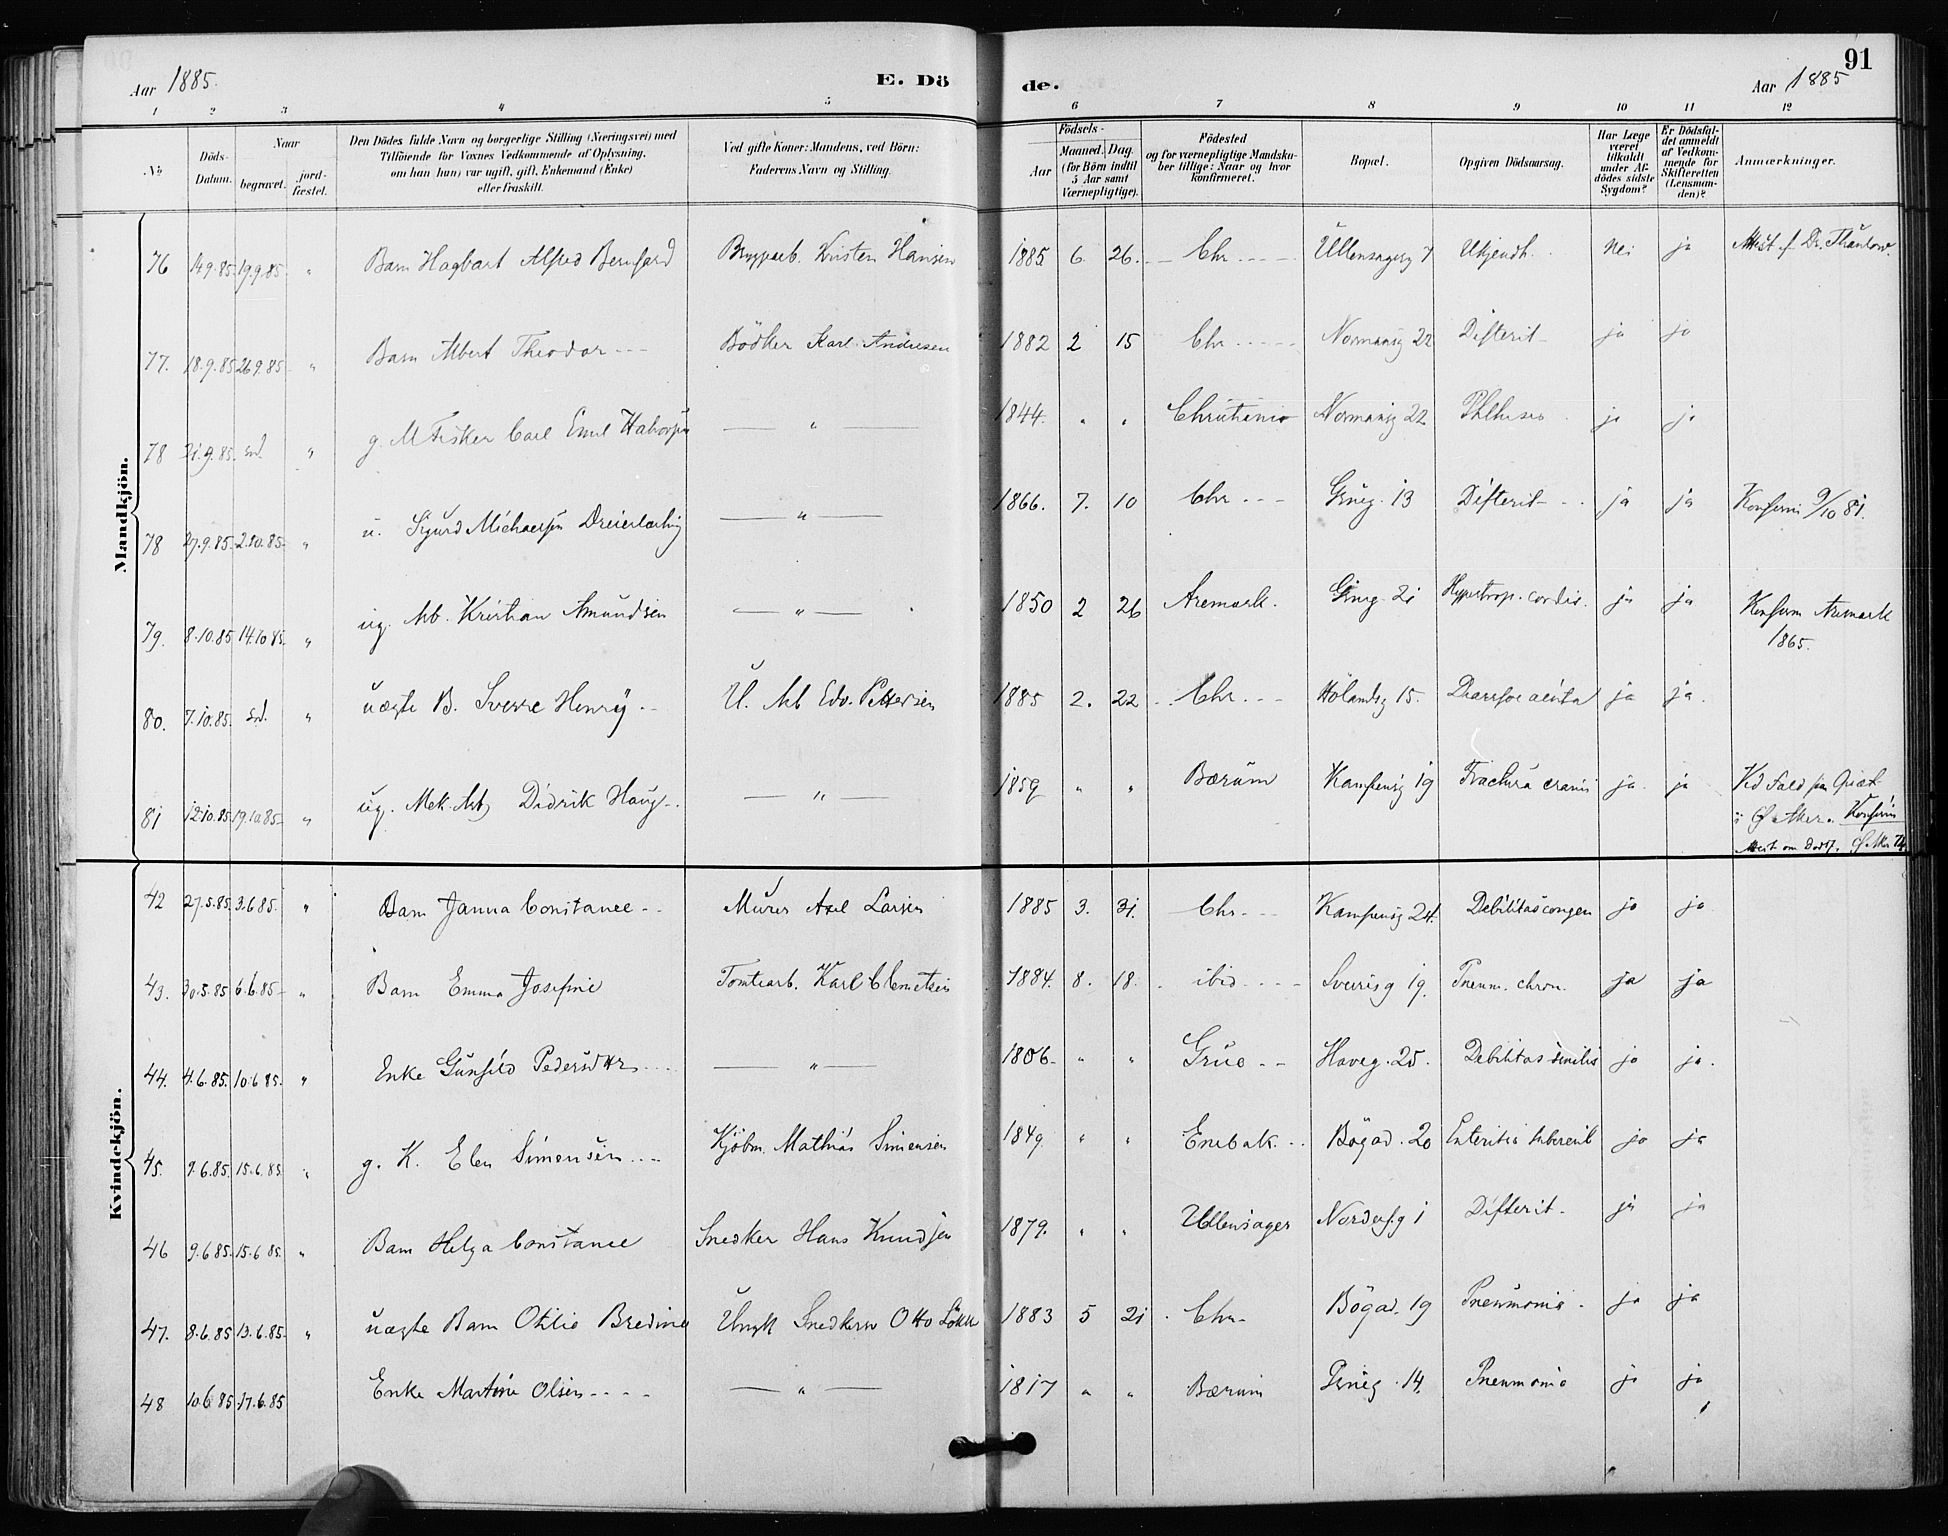 91
Aar 1885.
E. Dö
de.
Aar 1885
1 2 3 4 5 6 7 8 9 10 11 12
№ Döds-Datum. Naar begravet. jordfæstet. Den Dödes fulde Navn og borgerlige Stilling (Næringsvei) med Tilföiende for Voxnes Vedkommende af Oplysning, om han (hun) var ugift, gift, Enkemand (Enke) eller fraskilt. Ved gifte Koner: Mandens, ved Börn: Faderens Navn og Stilling. Födsels- Aar Maaned. Dag. (for Börn indtil 5 Aar samt Værnepligtige). Födested og for værnepligtige Mandskaber tillige: Naar og hvor konfirmeret. Bopæl. Opgiven Dödsaarsag. Har Læge været tilkaldt under Afdödes sidste Sygdom? Er Dödsfaldet anmeldt af Vedkommende for Skifteretten (Lensmanden)? Anmærkninger.
Mandkjön.
76 14.9.85 19.9.85 " Barn Hagbart Alfred Bernhard Bryggarb. Kristen Hansen 1885 6 26. Chr. Ullensagerg 7 Ukjendt. Nei ja Attest f. Dr. Thaulow.
77. 18.9.85 26.9.85 " Barn Albert Theodor Bödker Karl Andresen 1882 2 15 Chr Normannsg 22 Difterit ja ja
78 21.9.85. " g. M Fisker Carl Emil Halvorsen " 1844. " " Christiania Normannsg 22 Phthisis ja ja
78 27.9.85. 2.10.85. " u. Sigurd Michaelsen Dreierlærling " 1866. 7. 10 Chr Grüng. 13 Difterit ja ja Konfirm 9/10 81.
79. 8.10.85 14.10.85. " ug. Arb. Kristian Amundsen " 1850 2 26 Aremark. Grüng. 21 Hypertrop. cordis. ja ja Konfirm Aremark 1865.
80. 7.10.85. " uægte B. Sverre Henry U. Arb Edv. Pettersen 1885 2. 22 Chr. Hölandsg 15. Diarrhoe acuta ja ja.
81 12.10.85 19.10.85 " ug. Mek. Arb. Didrik Haug " 1859 " " Bærum Kampensg 19 Fractura cranii ja. ja Ved Fald paa i Ø Aker. Konfirm Attest om Dødsf. Ø Aker 74
Kvindekjön.
42 27.5.85. 3.6.85. " Barn Janna Constance Murer Axel Larsen 1885 3. 31. Chr. Kampensg 24. Debilitas congen ja ja
43. 30.5.85 6.6.85 " Barn Emma Josefine Tomtearb. Karl Clemetsen 1884. 8. 18. ibid Sverisg 19. Pneum. chron. ja ja
44. 4.6.85. 10.6 85. " Enke Gunhild Pedersdtr. " 1806 " " Grue Haveg. 25. Debilitas senilis ja ja.
45. 9.6.85. 15.6.85. " g. K. Elen Simensen Kjöbm. Mathias Simensen 1849. " " Enebak Bögad. 20 Enteritis tubercul ja ja
46 9.6 85. 15.6 85. " Barn Helga Constance Snedker Hans Knudsen 1879. " " Ullensager Norderhg 1 Difterit ja ja
47. 8.6.85 13.6.85. " uægte Barn Otilie Bredine Ungk Snedkersv Otto Lökke 1883 5 21 Chr. Bögad. 19 Pneumonia. ja ja
48 10.6 85. 17.6.85 Enke Martine Olsen " 1817 " " Bærum Grüng. 14. Pneumonia ja ja